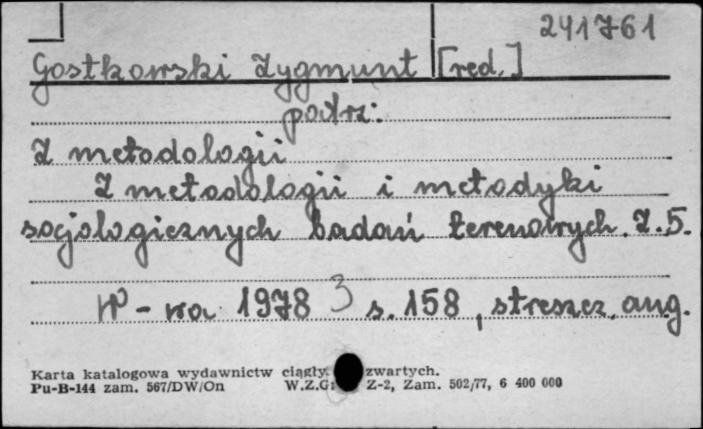 241761
Gostkowski Zygmunt [red.]
patrz:
Z metodologii
Z metodologii i metodyki
socjologicznych badań terenowych. Z.5.
W-wa 1978 3 s. 158, streszcz. ang.
Karta katalogowa wydawnictw ciągły. zwartych.
Pu-B-144 zam. 567/DW/On W.Z.G. Z-2, Zam. 502/77, 6 400 000